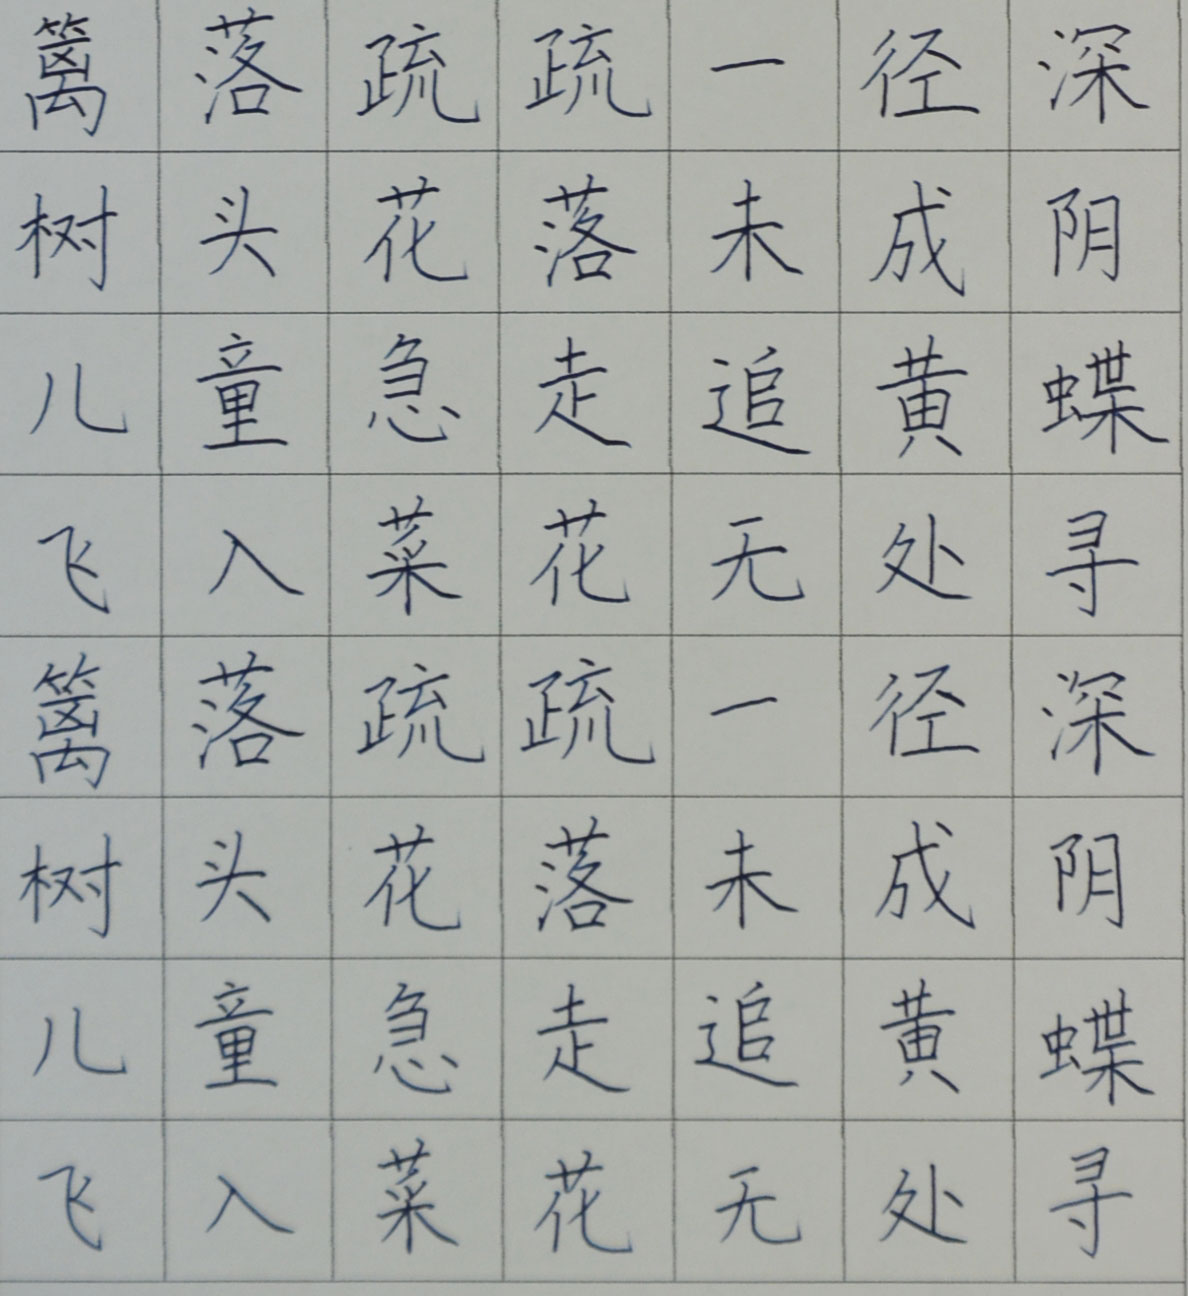 篱落疏疏一径深
树头花落未成阴
儿童急走追黄蝶
飞入菜花无处寻
篱落疏疏一径深
树头花落未成阴
儿童急走追黄蝶
飞入菜花无处寻